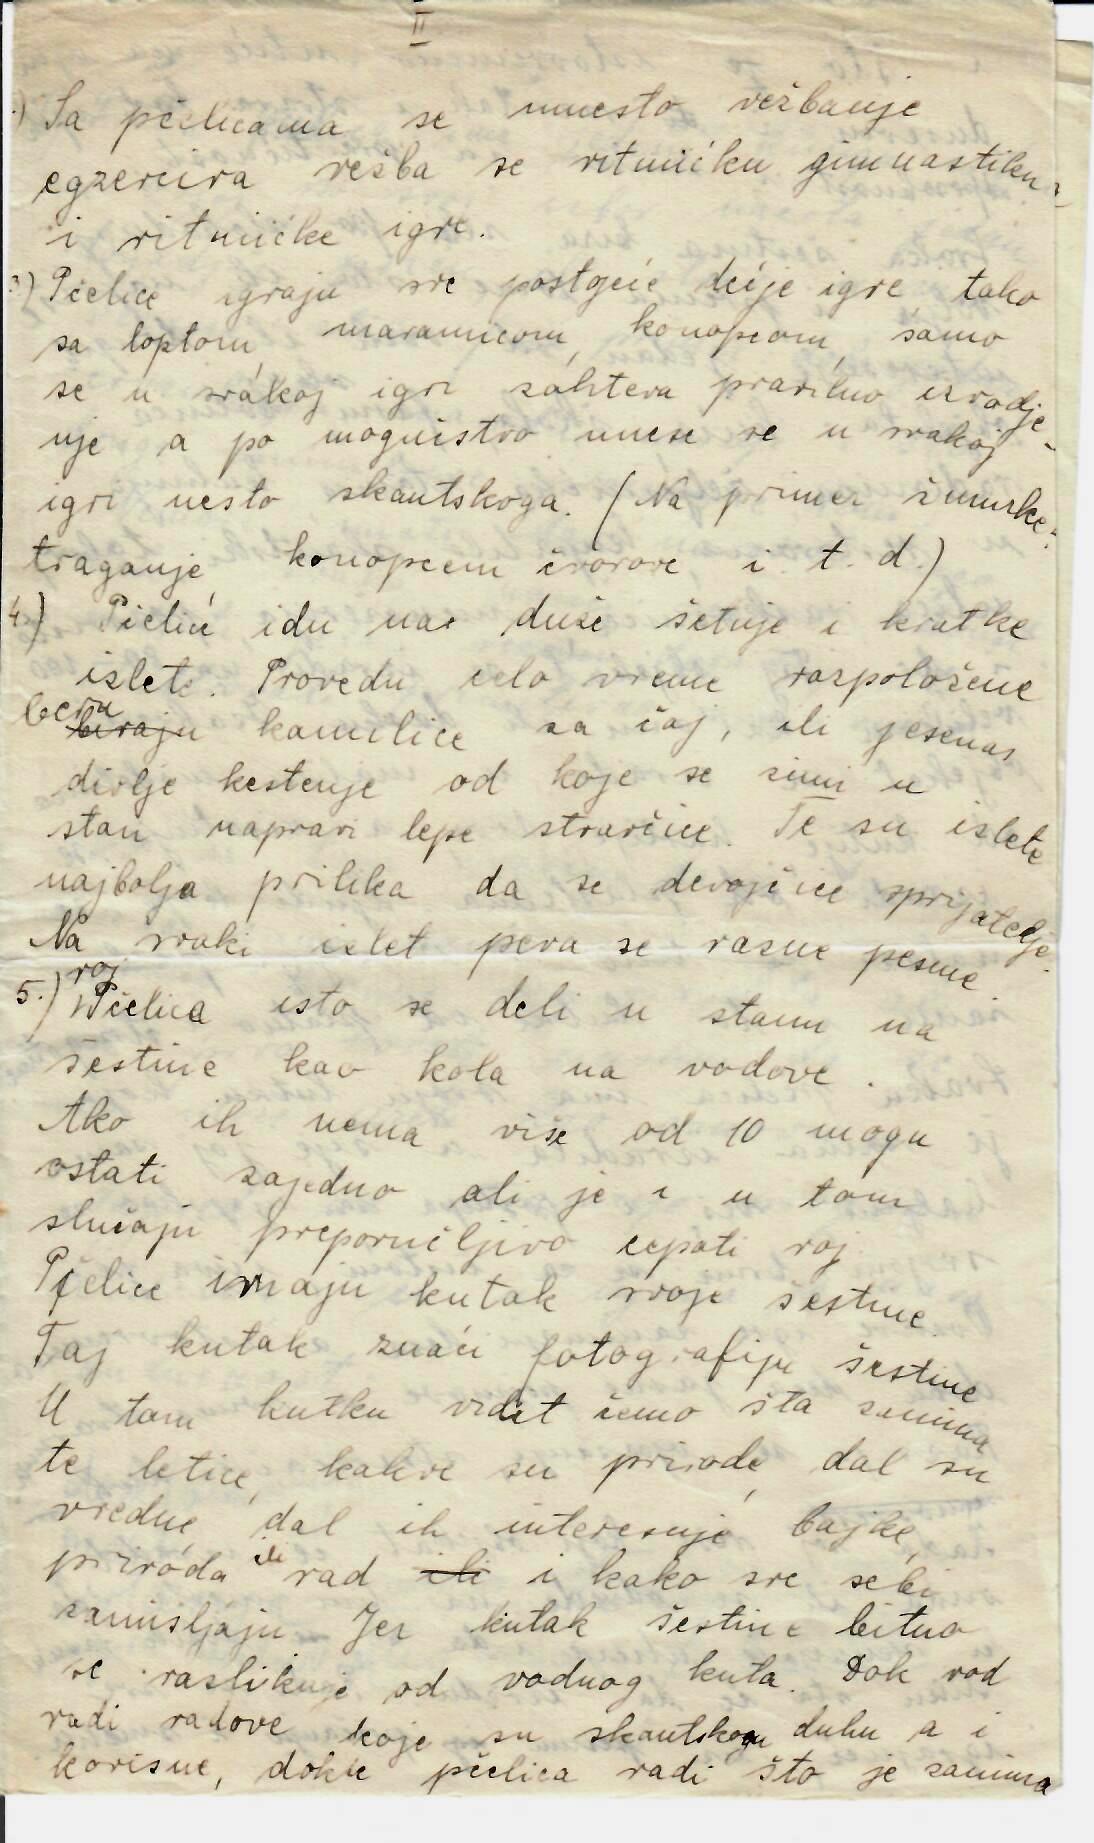 II
Sa pčelicama se mnesto vežbanje
egzercira vežba se ritmičku gimnastiku
i ritmičke igre.
3) Pčelice igraju sve postojeće dečje igre tako
sa loptom, maramicom, konopcom, samo
se u svakoj igri zahteva pravilno izvodje-
nje a po mogućstvo unese se u svakoj
igri nesto skautskoga. (Na primer žmurke:
traganje, konopcem čvorove i. t. d.)
4.) Pčelice idu na duže šetnje i kratke
izlete. Provedu celo vreme razpoložene
beru
biraju kamilice za čaj, ili jesenas
divlje kestenje od koje se zimi u
stan napravi lepe stvarčice. Te su izlete
najbolja prilika da se devojčice sprijatelje.
Na svaki izlet peva se razne pesme.
roj
5.) Pčelica isto se deli u stanu na
šestine kao kola na vodove.
Ako ih nema više od 10 mogu
ostati zajedno ali je i u tom
slučaju preporučljivo cepati roj.
Pčelice imaju kutak svoje šestine.
Taj kutak znači fotografiju šestine
U tom kutku vidit ćemo šta zanima
te letice, kakve su prirode, dal su
vredne, dal ih interesuje bajke,
priroda ili rad ili i kako sve sebi
zamišljaju. Jer kutak šestine bitno
se razlikuje od vodnog kuta. Dok vod
radi radove koje su skautskogu duhu a i
korisne, dokle pčelica radi što je zanima